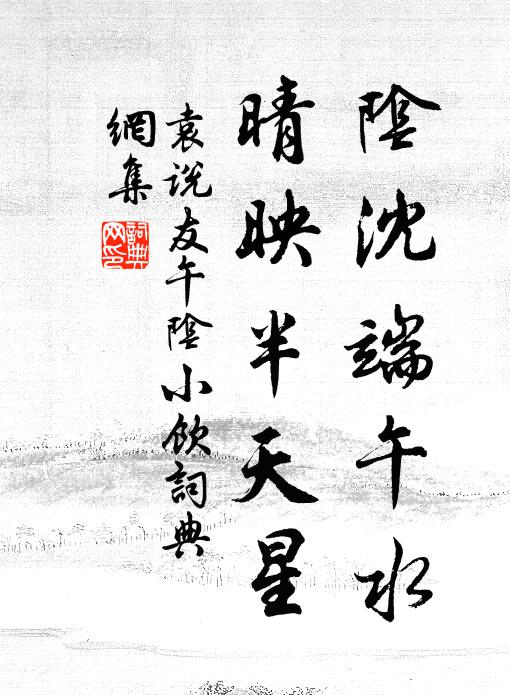 陰沈端午水
晴映半天星
袁說友午陰小飲詞典
網集
詞典网印